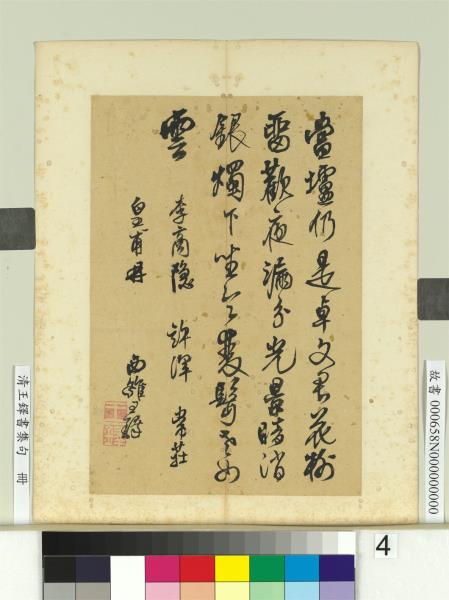 當壚仍是卓文君花榭
留歡夜漏分光景暗消
銀燭下坐令雙鬢不如
雲
李商隱 許渾 韋莊
皇甫冉
西雒王鐸
故書 000658N000000000
清王鐸書集句 冊
4